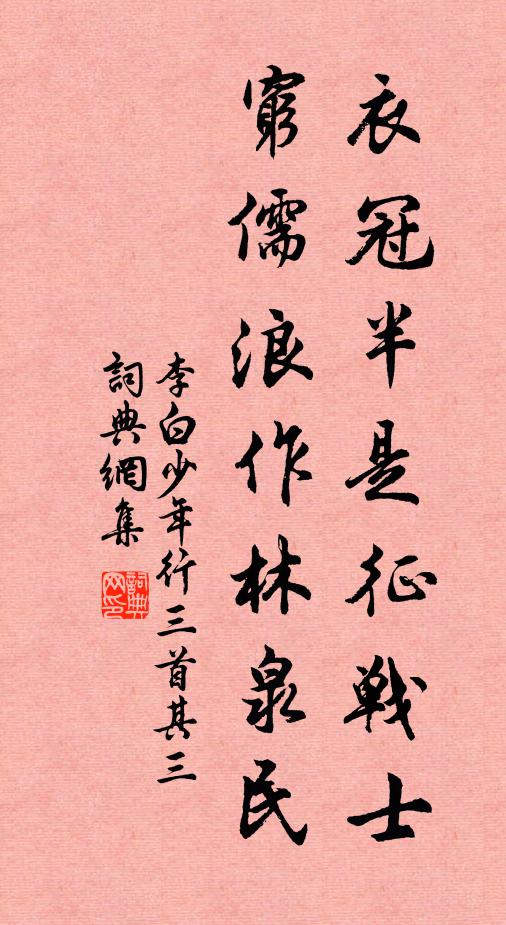 衣冠半是征戰士
窮儒浪作林泉民
李白少年行三首其三
詞典網集
詞典网印